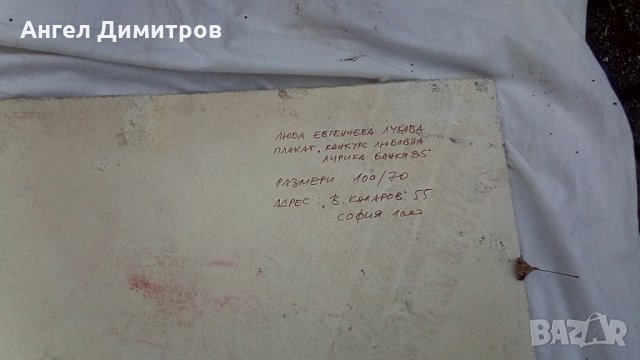 Ангел Димитров
ЛЮБА ЕВГЕНИЕВА ЛУКОВА
ПЛАКАТ „КОНКУРС ЛЮБОВНА
ЛИРИКА БАНКЯ 85"
РАЗМЕРИ 100/70
АДРЕС: „В. КОЛАРОВ" 55
СОФИЯ
BAZAR